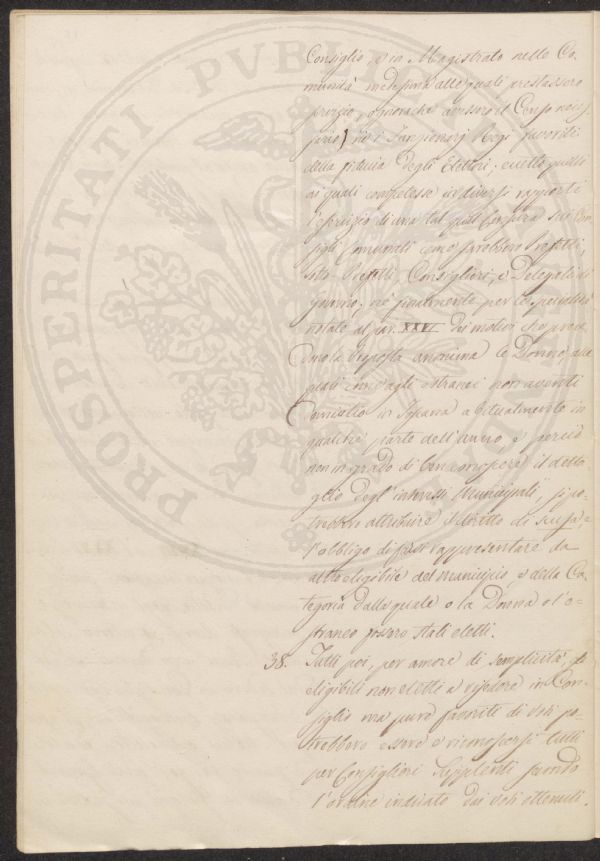 Consiglio, o in Magistrato nelle Co-
munità medesime alle quali prestassero
servizio, ognorache avessero il Censo neces-
sario) nè i Funzionarj Regj favoriti
della fiducia degli Elettori, eccetto quelli
ai quali competesse in diversi rapporti
l'esercizio di una tal qual Censura sui Con-
sigli Comunali come sarebbero Prefetti,
sotto Prefetti, Consiglieri, e Delegati di
Governo; nè finalmente per le specialità
notate al par. XXVI dei motivi che prece-
dono la Proposta anonima le Donne, alle
quali come agli estranei non aventi
domicilio in Toscana abitualmente in
qualche parte dell'anno, e perciò
non in grado di ben conoscere il detta-
glio degl'interessi Municipali, si po-
trebbero attribuire il diritto di scusa, e
l'obbligo di farsi rappresentare da
altro eligibile del Municipio, e della Ca-
tegoria dalla quale o la Donna o l'e-
straneo fossero stati eletti.
38. Tutti poi, per amore di semplicità, gli
eligibili non eletti a risedere in Con-
siglio ma pure favoriti di voti po-
trebbero essere e riconoscersi tutti
per Consiglieri Supplenti secondo
l'ordine indicato dai voti ottenuti.
PROSPERITATI PVBLIC